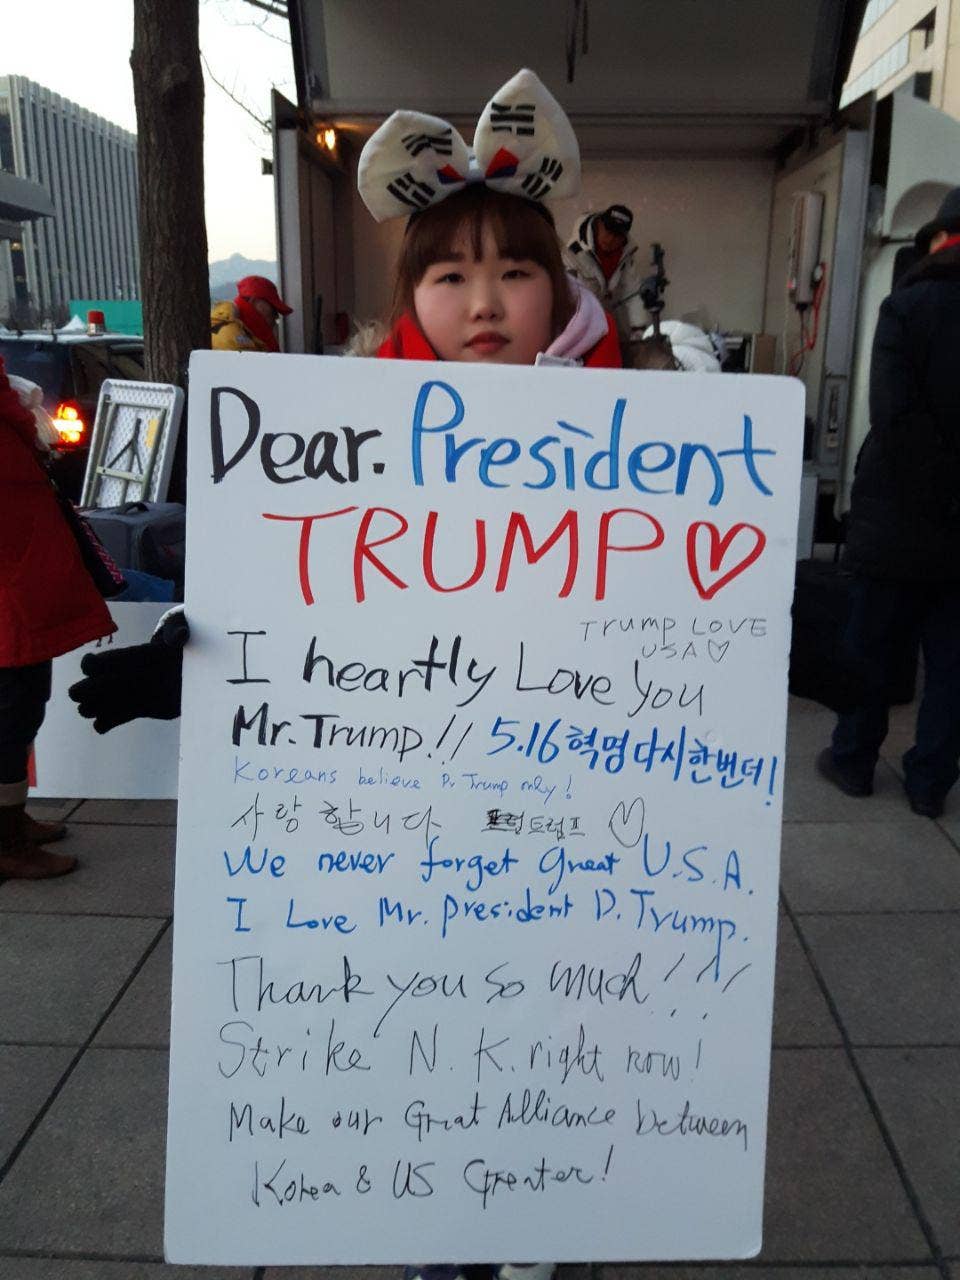 Dear. President
TRUMP ♡
Trump LOVE
USA ♡
I heartly Love you
Mr. Trump!! 5.16혁명 다시 한번 더!
Koreans believe D. Trump only!
사랑합니다 트럼프 ♡
We never forget great U.S.A.
I Love Mr. president D. Trump.
Thank you so much!!!
Strike N. K. right now!
Make our Great Alliance between
Korea & US Greater!